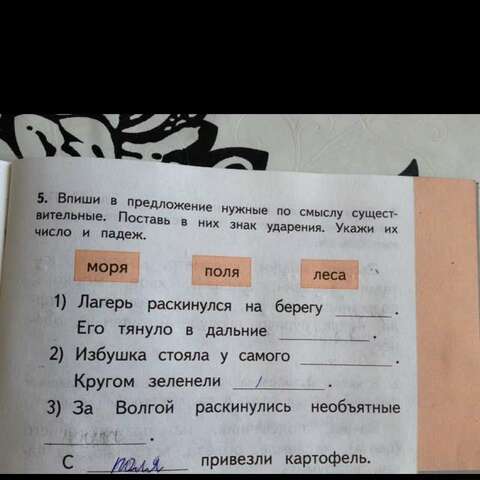 5. Впиши в предложение нужные по смыслу сущест-
вительные. Поставь в них знак ударения. Укажи их
число и падеж.
моря поля леса
1) Лагерь раскинулся на берегу ________ .
Его тянуло в дальние ________ .
2) Избушка стояла у самого ________ .
Кругом зеленели ________ .
3) За Волгой раскинулись необъятные
________ .
С поля привезли картофель.